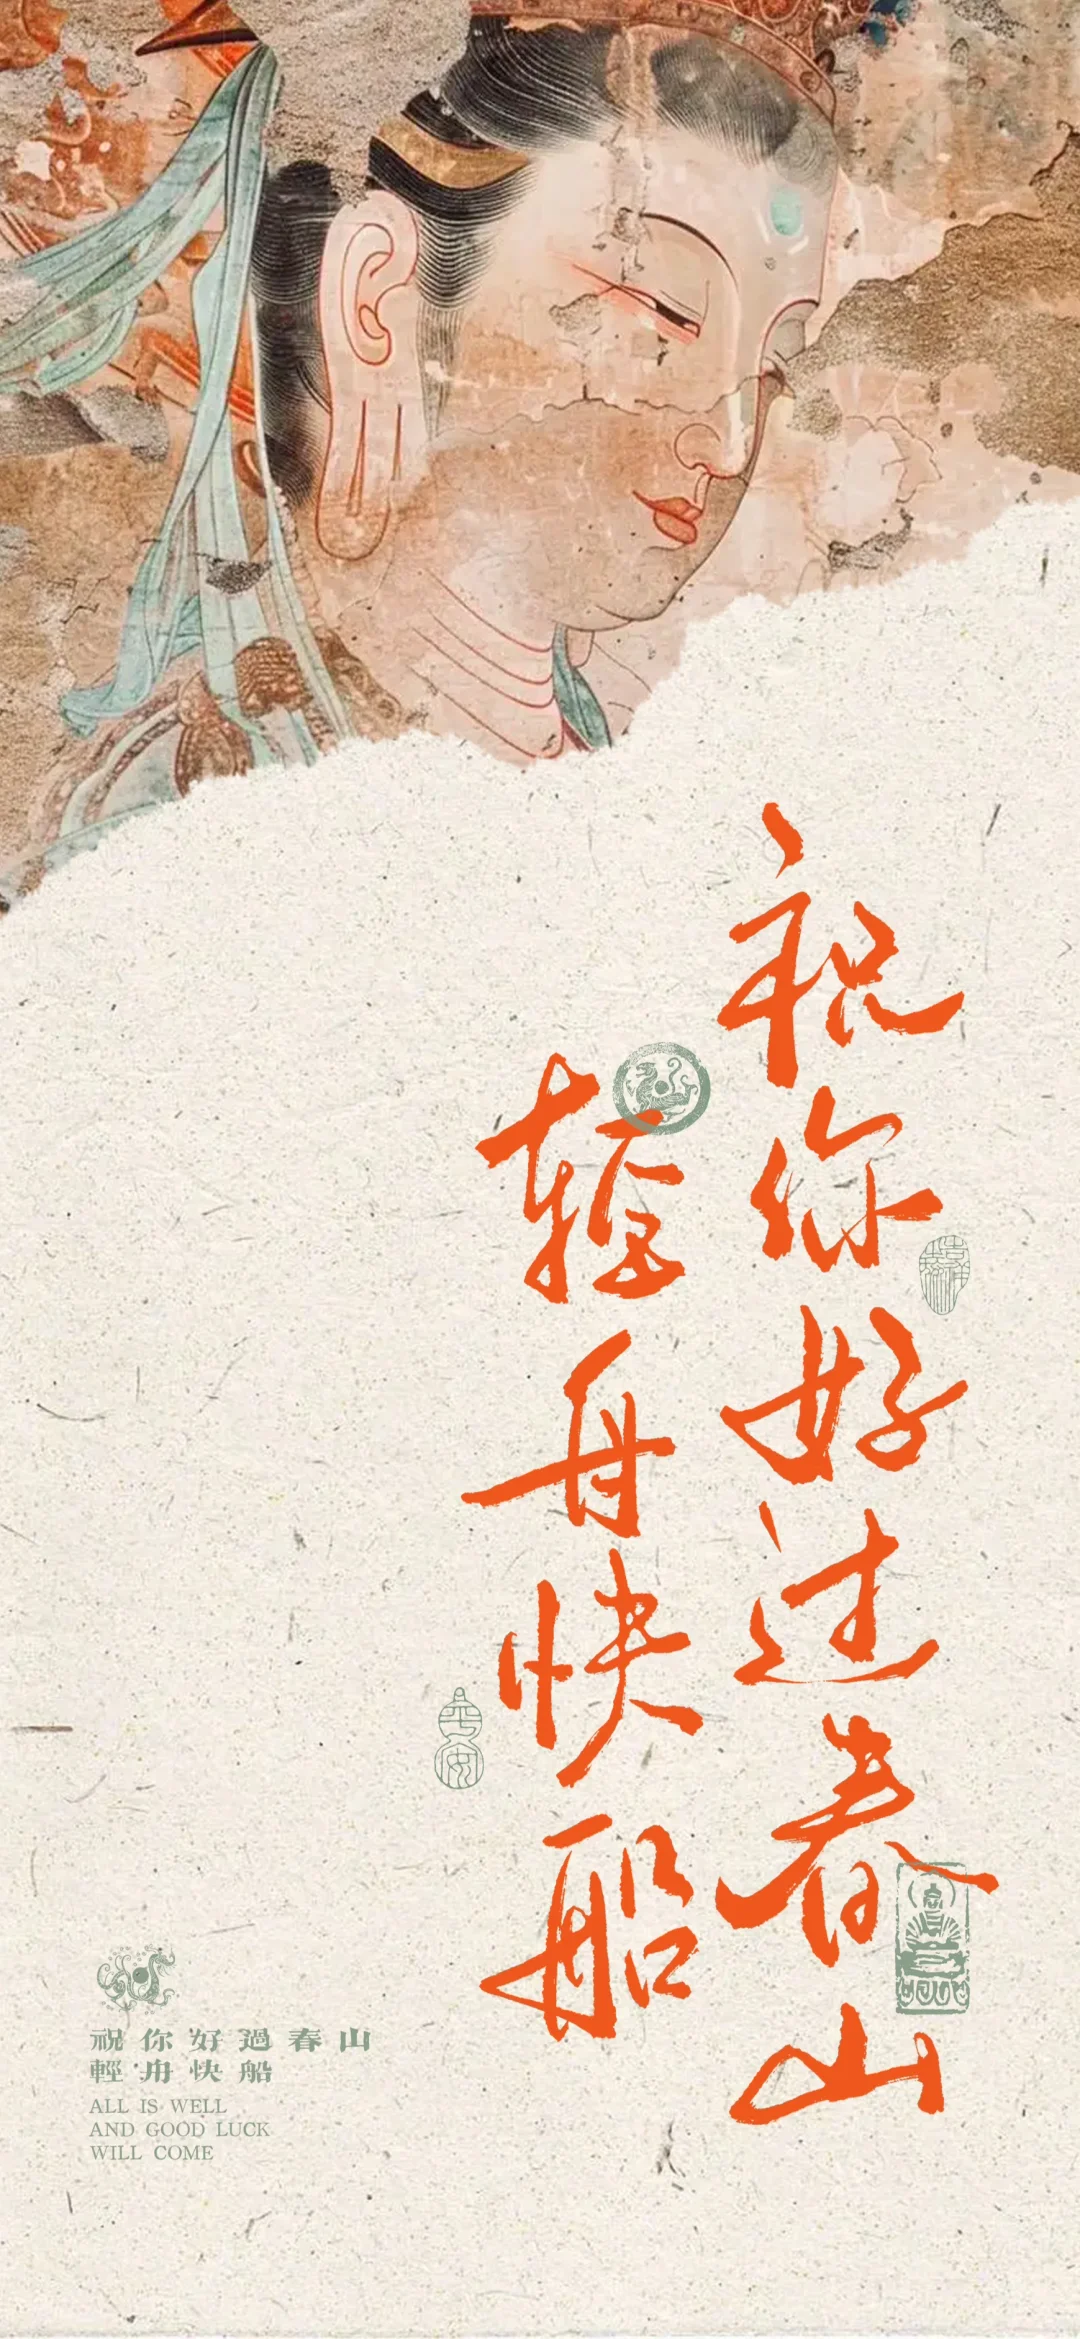 祝你好过春山
輕舟快船
平安
祝你好過春山
輕舟快船
ALL IS WELL
AND GOOD LUCK
WILL COME